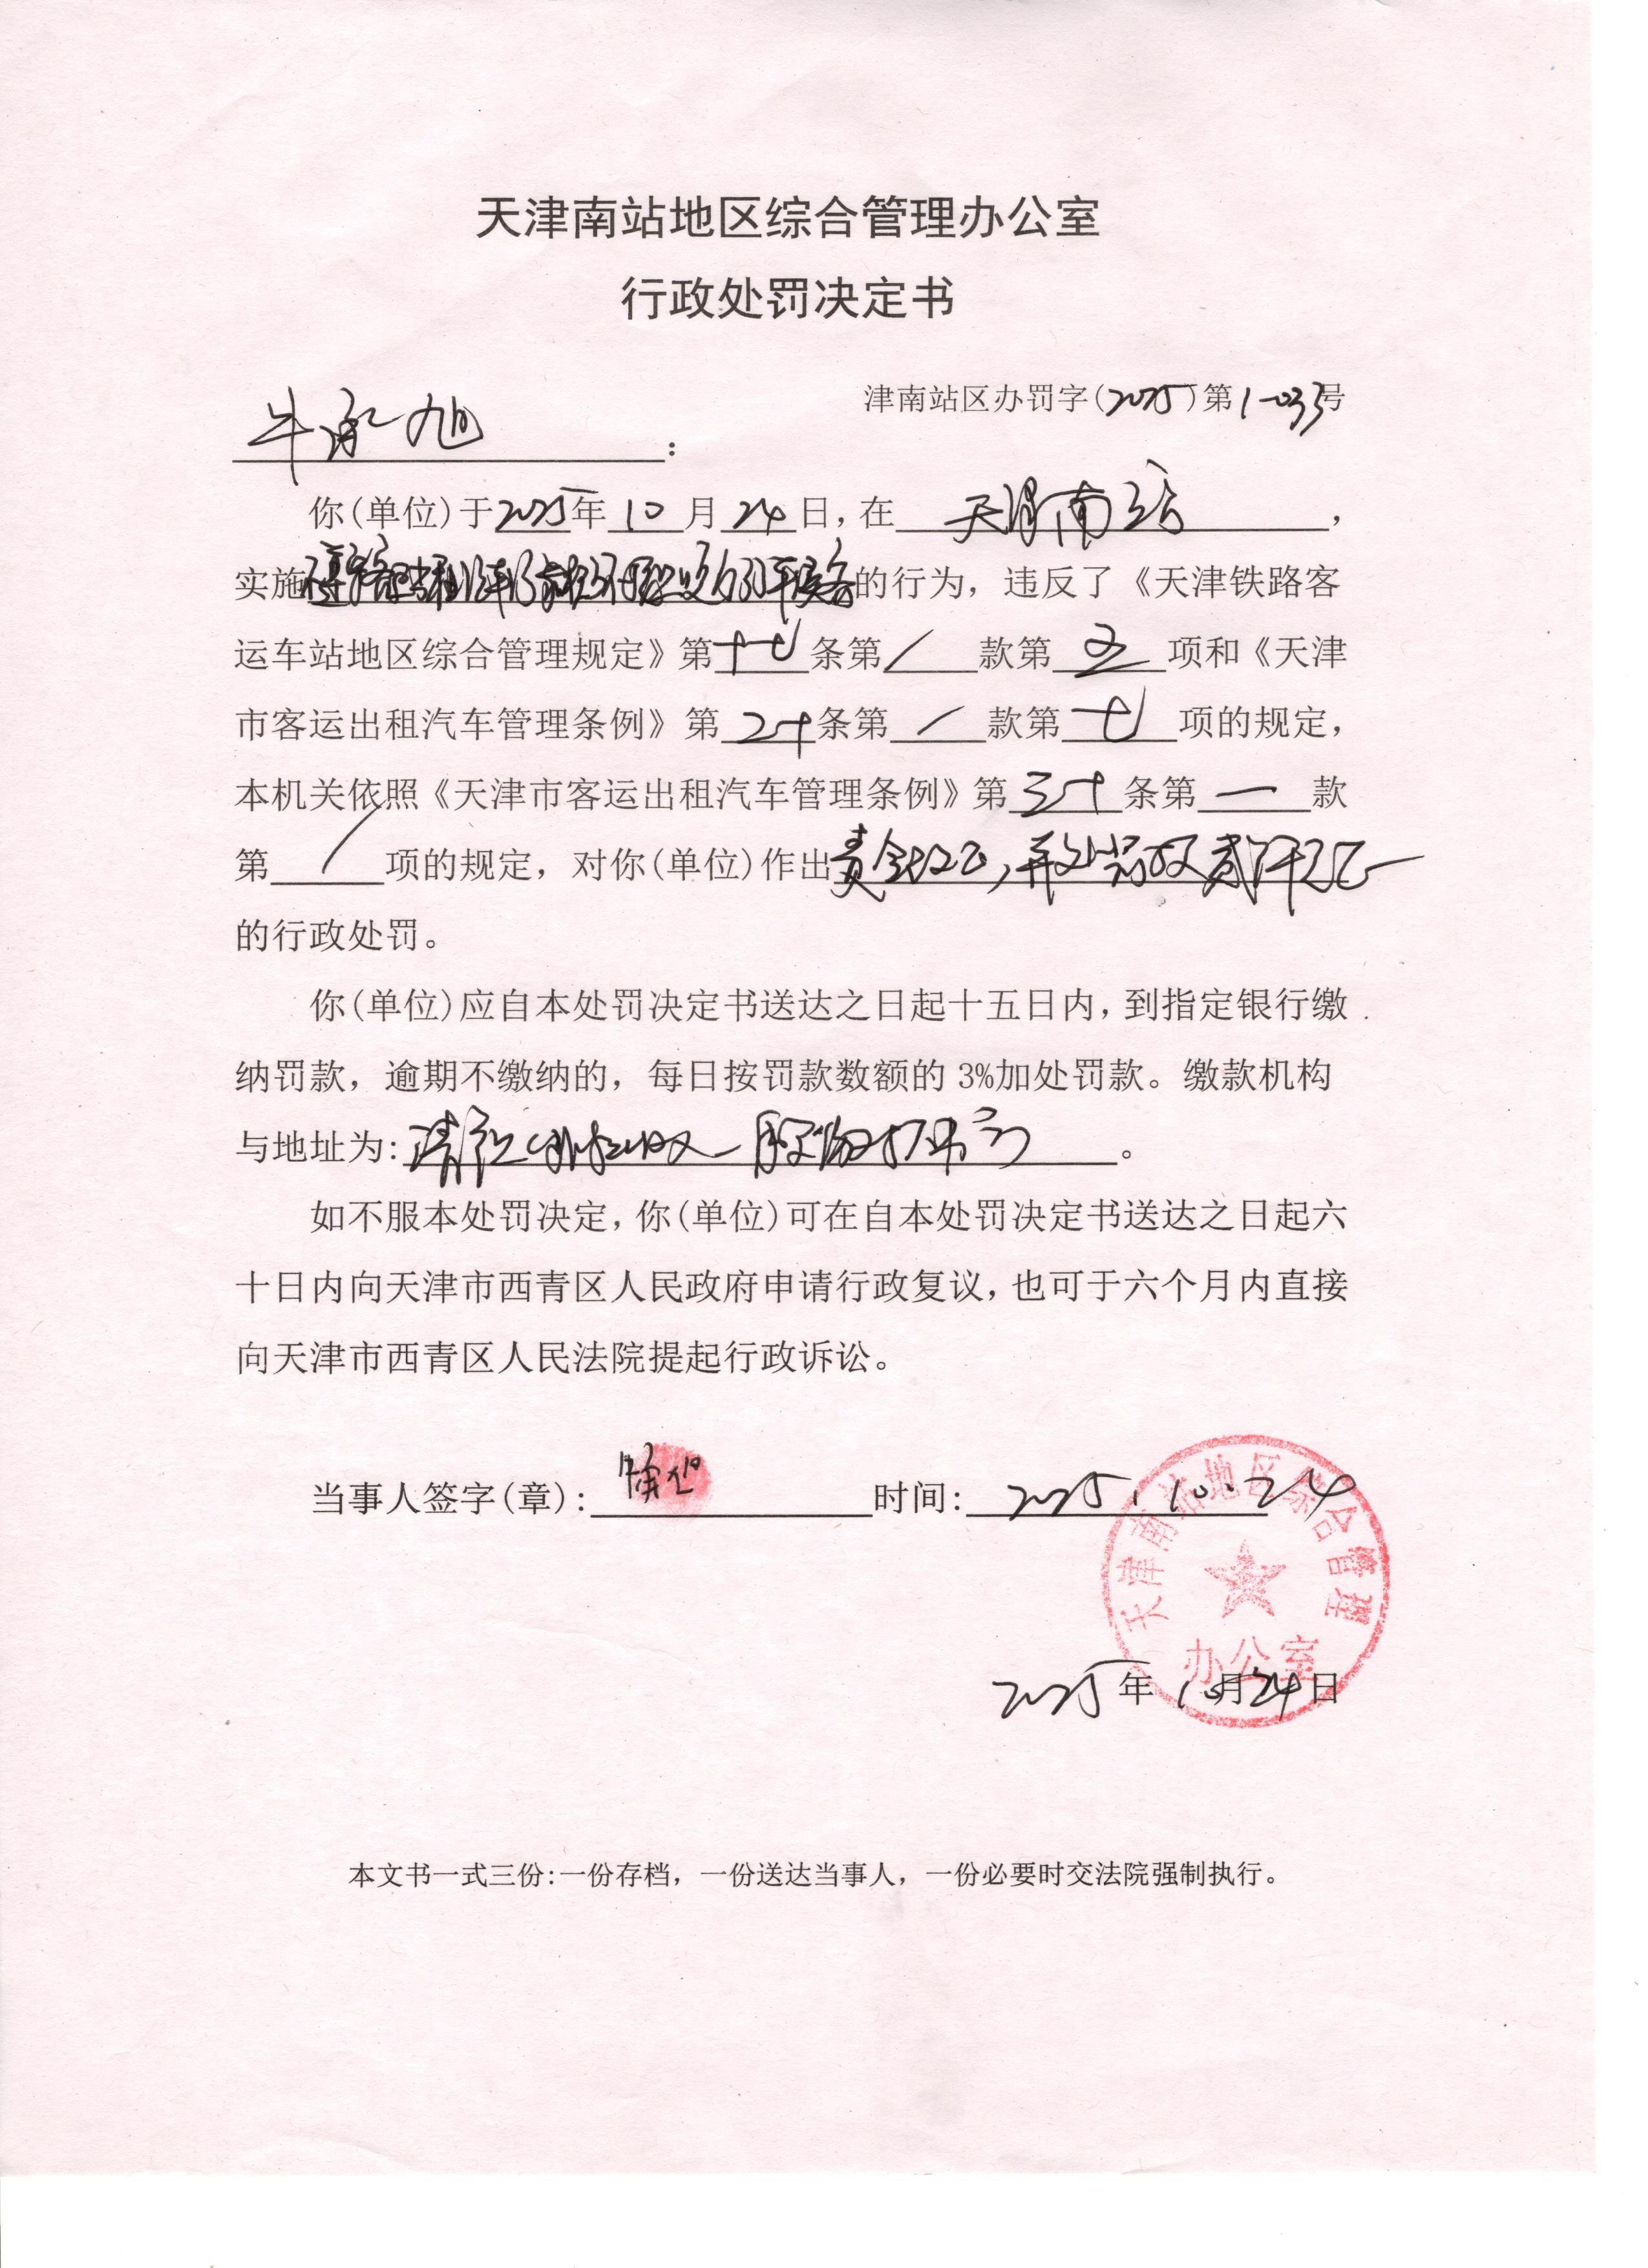 天津南站地区综合管理办公室
行政处罚决定书
津南站区办罚字(2025)第1-033号
牛承旭:
你(单位)于2025年10月24日,在天津南站,
实施的行为,违反了《天津铁路客
运车站地区综合管理规定》第十七条第/款第五项和《天津
市客运出租汽车管理条例》第二十条第/款第七项的规定,
本机关依照《天津市客运出租汽车管理条例》第三十条第一款
第/项的规定,对你(单位)作出责令改正,并处罚款贰仟元
的行政处罚。
你(单位)应自本处罚决定书送达之日起十五日内,到指定银行缴
纳罚款,逾期不缴纳的,每日按罚款数额的3%加处罚款。缴款机构
与地址为:。
如不服本处罚决定,你(单位)可在自本处罚决定书送达之日起六
十日内向天津市西青区人民政府申请行政复议,也可于六个月内直接
向天津市西青区人民法院提起行政诉讼。
当事人签字(章): 时间: 2025.10.24
天津南站地区综合管理
办公室
2025年10月24日
本文书一式三份:一份存档,一份送达当事人,一份必要时交法院强制执行。